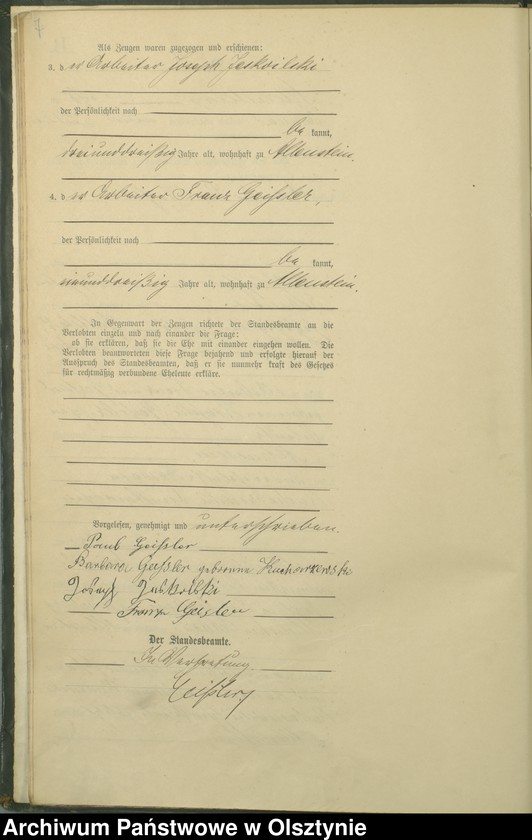 Als Zeugen waren zugezogen und erschienen:
3. der Arbeiter Joseph Jeskolski
der Persönlichkeit nach
be kannt,
dreiunddreißig Jahre alt, wohnhaft zu Allenstein.
4. der Arbeiter Franz Geißler,
der Persönlichkeit nach
be kannt,
einunddreißig Jahre alt, wohnhaft zu Allenstein.
In Gegenwart der Zeugen richtete der Standesbeamte an die
Verlobten einzeln und nach einander die Frage:
ob sie erklären, daß sie die Ehe mit einander eingehen wollen. Die
Verlobten beantworteten diese Frage bejahend und erfolgte hierauf der
Ausspruch des Standesbeamten, daß er sie nunmehr kraft des Gesetzes
für rechtmäßig verbundene Eheleute erkläre.
Vorgelesen, genehmigt und unterschrieben.
Paul Geißler
Barbara Geißler geborene
Joseph
Franz Geißler
Der Standesbeamte.
In Vertretung.
Archiwum Państwowe w Olsztynie